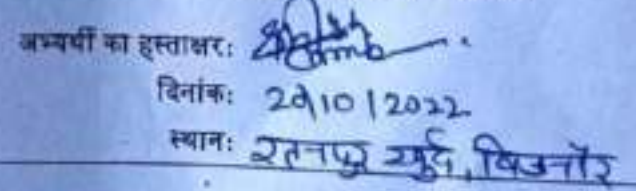 अभ्यर्थी का हस्ताक्षर:
दिनांक: 20/10/2022
स्थान: रतनपुर खुर्द, बिजनौर